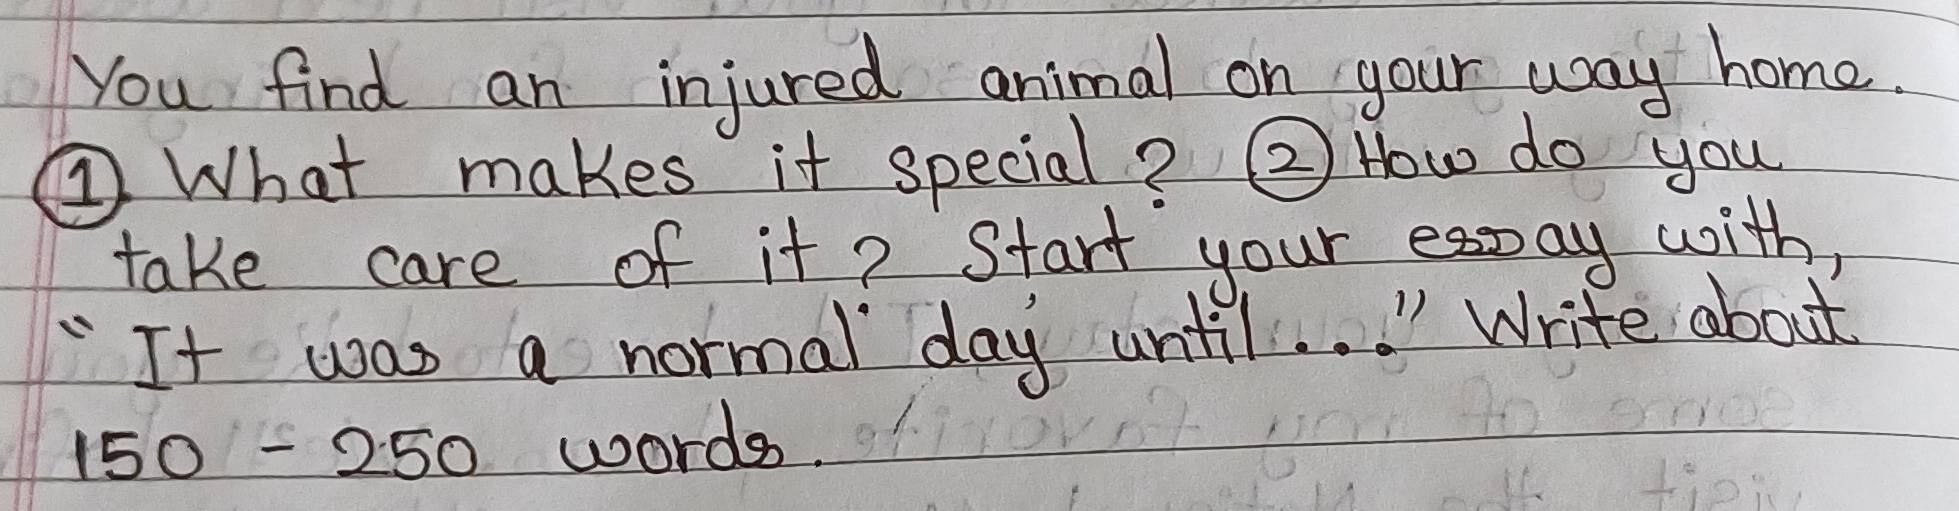 You find an injured animal on your way home.
① What makes it special? ② How do you
take care of it? Start your essay with,
"It was a normal day until..." Write about
150 - 250 words.